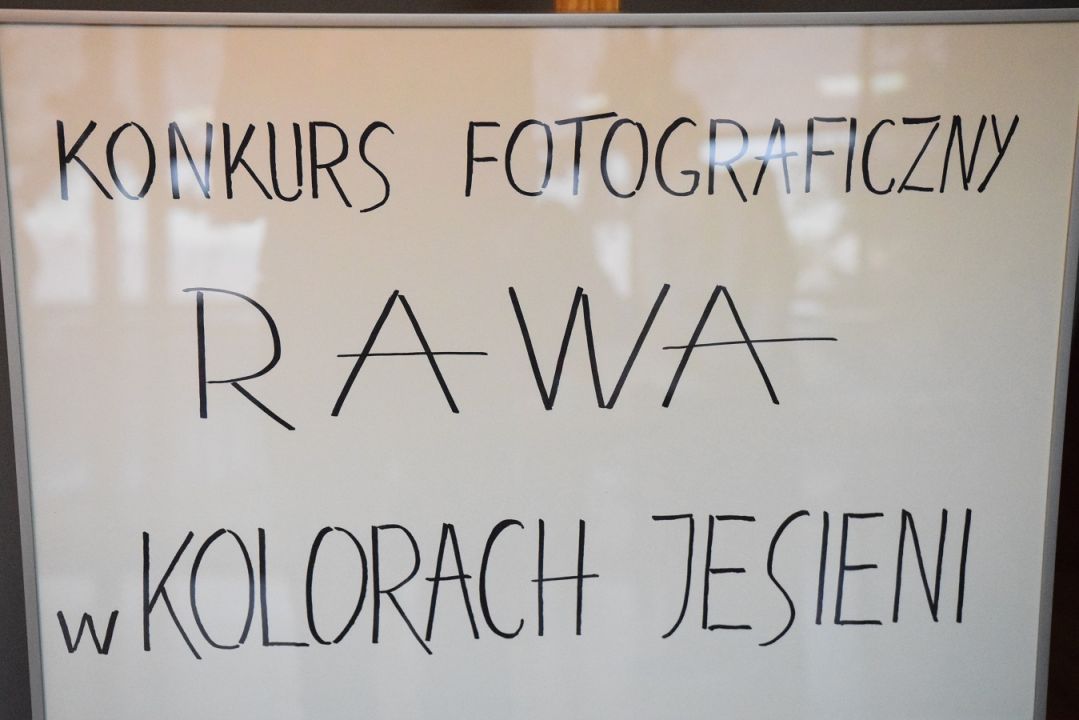 KONKURS FOTOGRAFICZNY
RAWA
w KOLORACH JESIENI